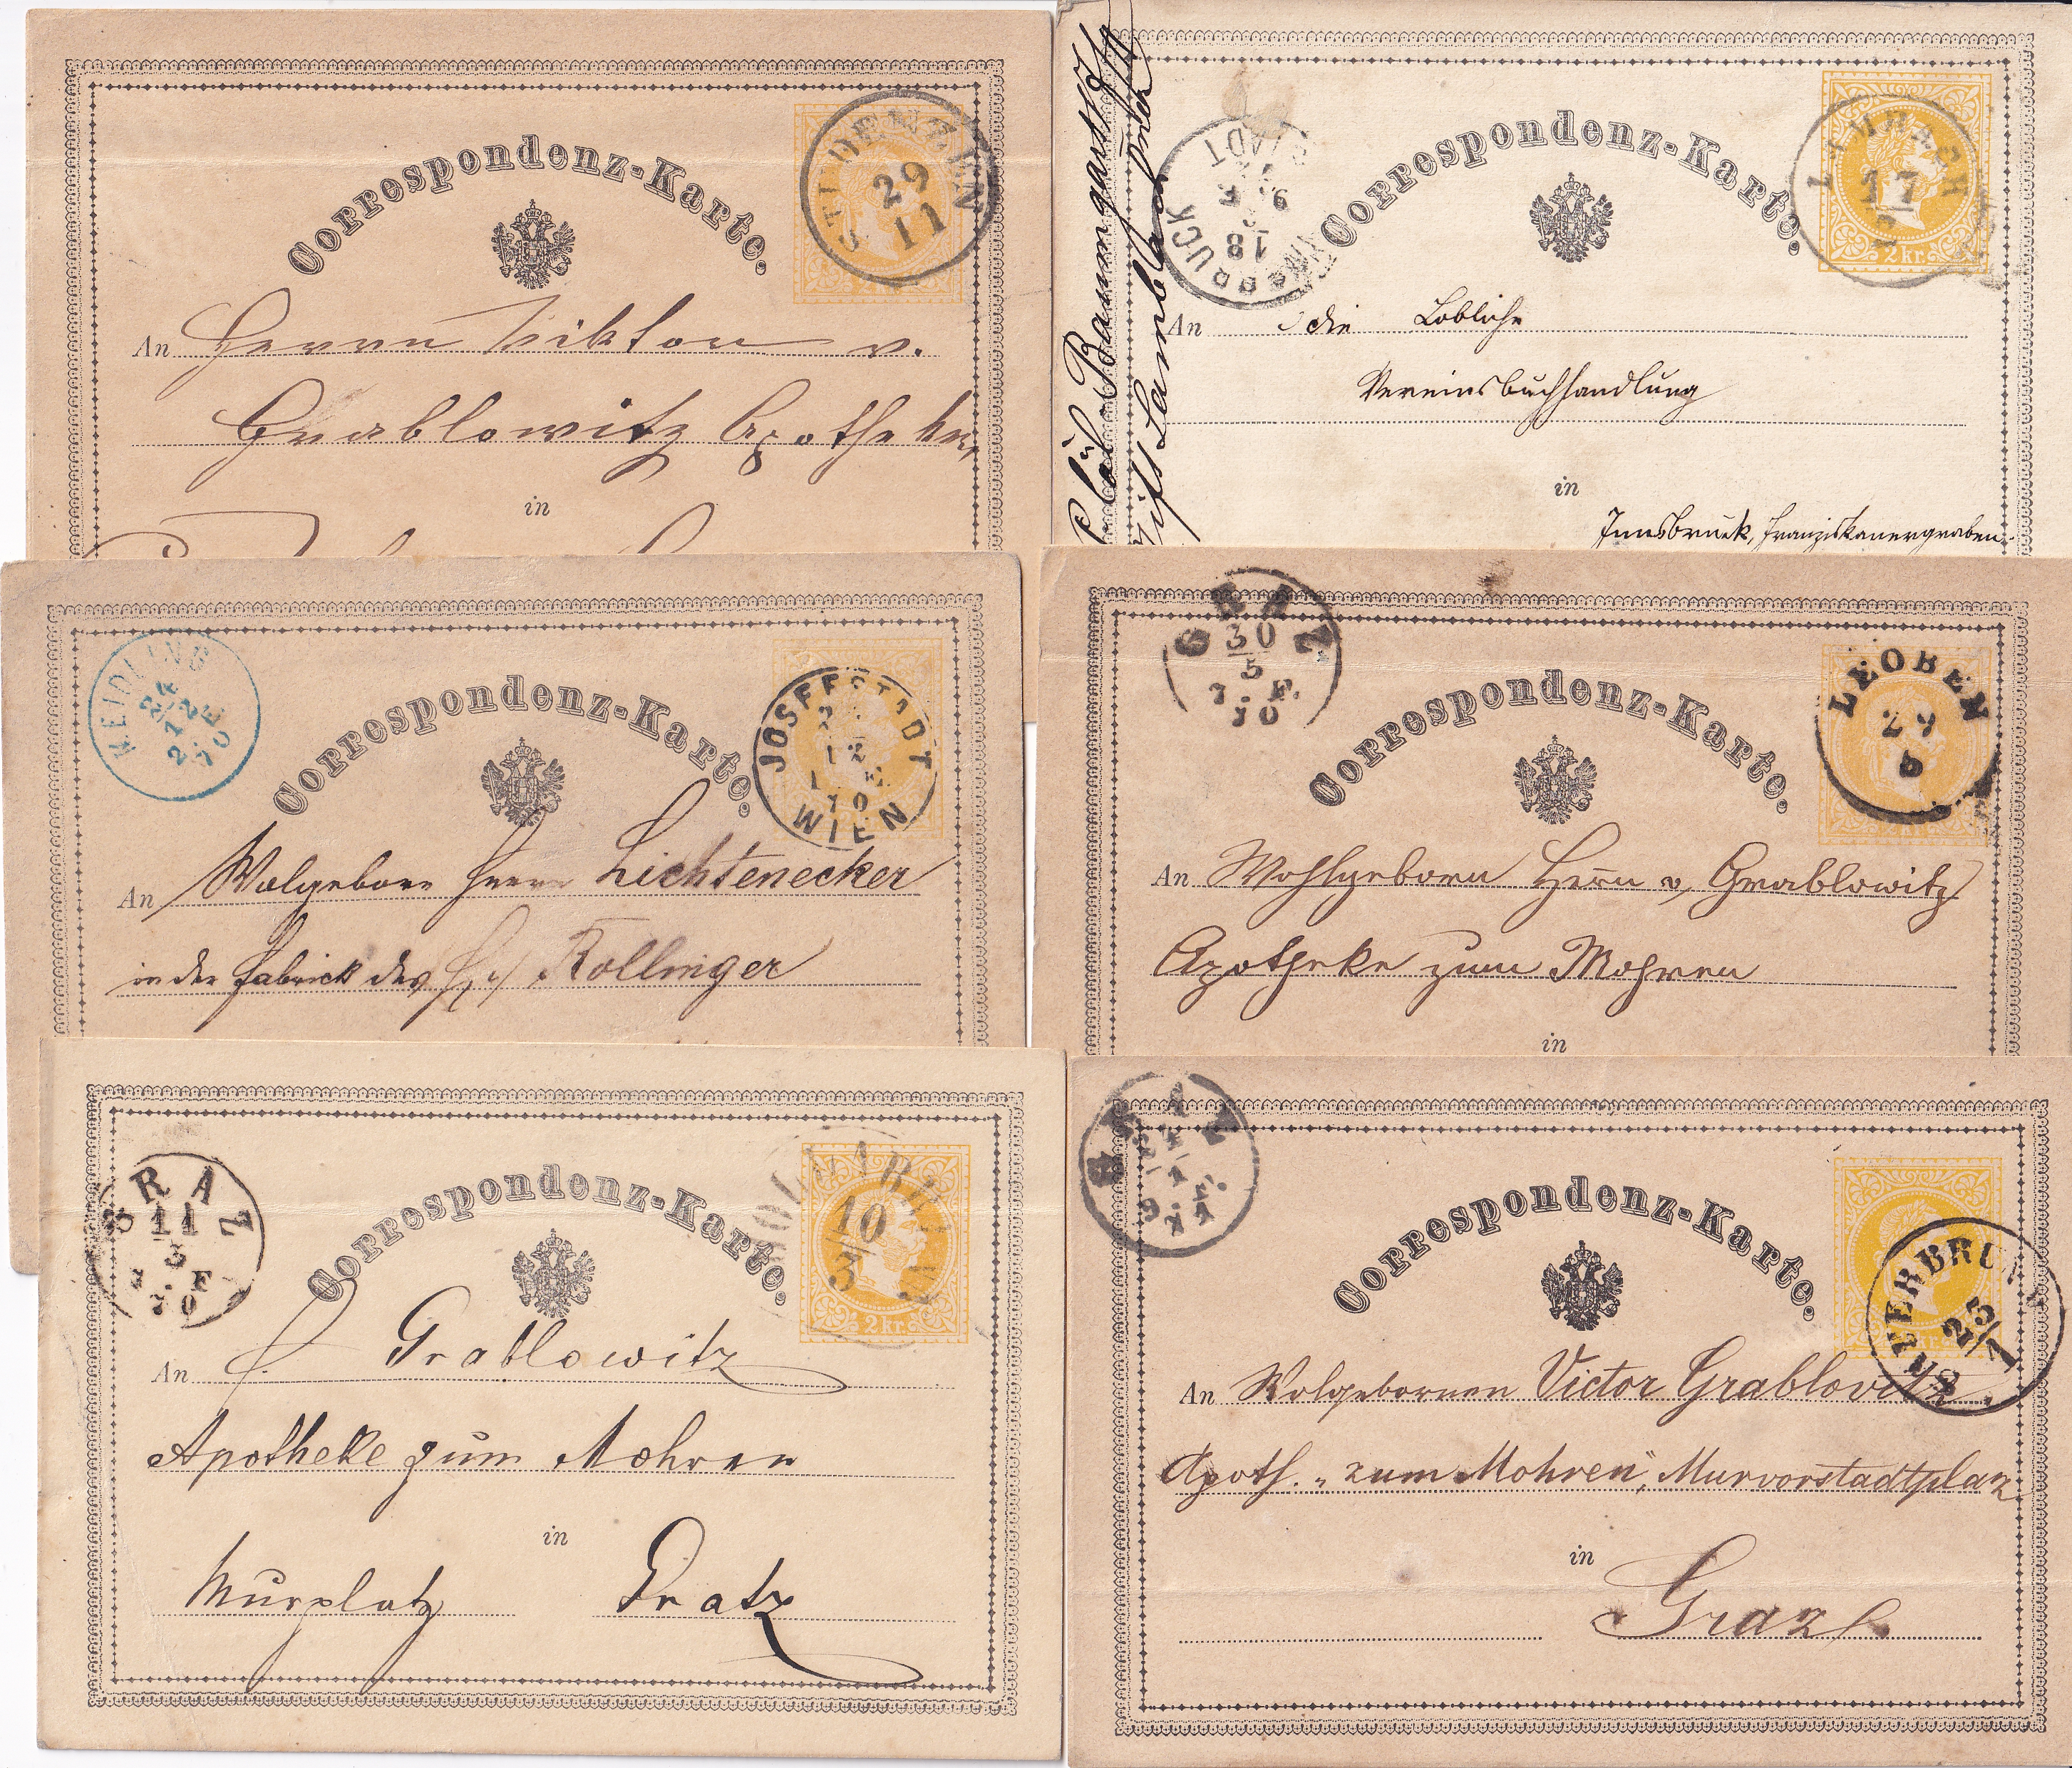 Correspondenz-Karte.
29
11
An Herrn Viktor v.
Grablowitz Apotheker
in
Correspondenz-Karte.
17
2 kr.
18
An die Löbliche
Vereinsbuchhandlung
in
Innsbruck, Franziskanergraben.
Baumgartner
Stift Lambach
MEIDLING
24
12
2 E
70
Correspondenz-Karte.
JOSEFSTADT
12
1 E
70
WIEN
An Wolgeboren Herrn Lichtenecker
in der Fabrick des H. Rollinger
GRAZ
30
5
7. F.
70
Correspondenz-Karte.
LEOBEN
29
5
An Wohlgeborn Herrn v. Grablowitz
Apotheke zum Mohren
in
GRAZ
11
3
7. F
70
Correspondenz-Karte.
10
3
2 kr.
An H. Grablowitz
Apotheke zum Mohren
in
Murplatz Gratz
Correspondenz-Karte.
25/1
An Wolgebornen Victor Grablovitz,
Apoth. "zum Mohren", Murvorstadtplaz
in
Graz